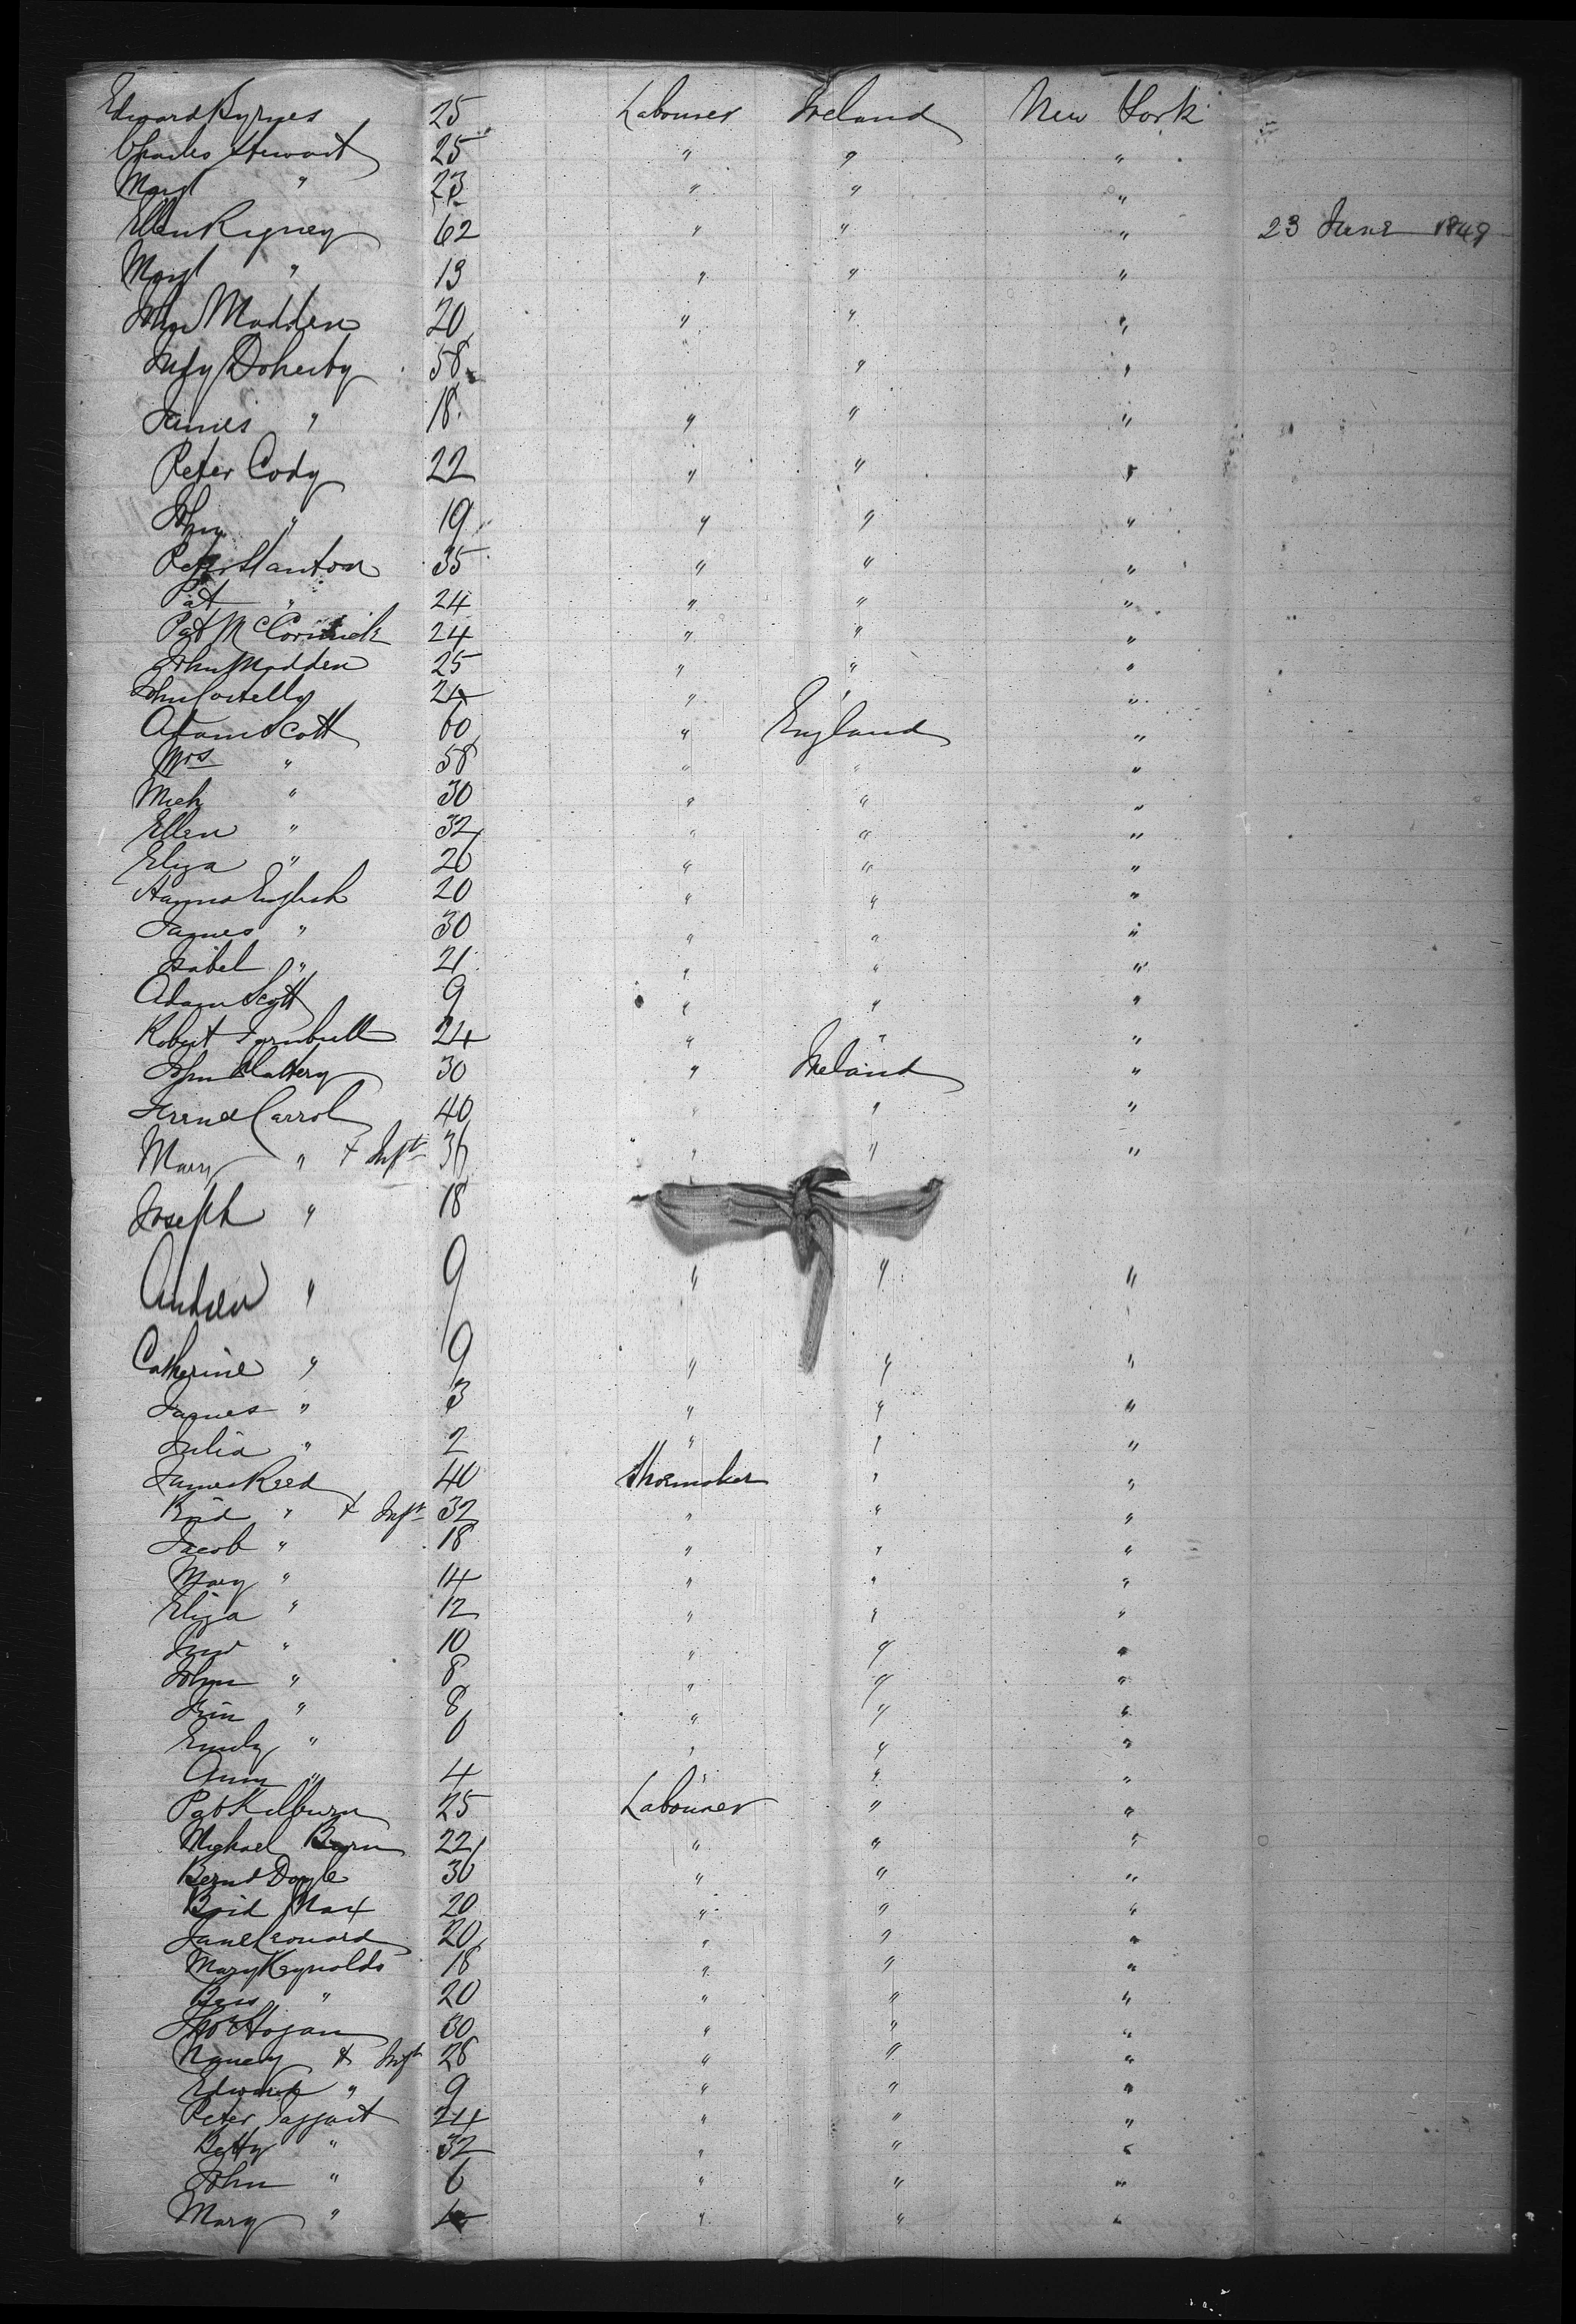 Edward Byrnes 25 Labourer Ireland New York
Charles Stewart 25 " " "
Mary " 23 " " "
Ellen Rigney 62 " " " 23 June 1849
Mary " 13 " " "
John Madden 20 " " "
Judy Doherty 58 " "
James " 18 " " "
Peter Cody 22 " " "
John " 19 " " "
Peter Stanton 35 " " "
Pat " 24 " " "
Pat McCormick 24 " " "
John Madden 25 " " "
John Costelly 24 " " "
Adam Scott 60 " England "
Mrs " 58 " " "
Mich " 30 " " "
Ellen " 32 " " "
Eliza " 26 " " "
Hanna English 20 " " "
James " 30 " " "
Isabel " 21 " " "
Adam Scott 9 " " "
Robert Turnbull 24 " " "
John Slattery 30 " Ireland "
Carrol 40 " " "
Mary " + Inft 36 " " "
Joseph " 18
Andrew " 9 " " "
Catherine " 9 " " "
James " 3 " " "
Julia " 2 " " "
James Reed 40 Shoemaker " "
Brid " + Inft 32 " " "
Jacob " 18 " " "
Mary " 14 " " "
Eliza " 12 " " "
" 10 " " "
John " 8 " " "
" 8 " " "
Emily " 6 " " "
Ann " 4 " " "
Pat Kilburn 25 Labourer " "
Michael Byrn 22 " " "
Bernd Doyle 30 " " "
Brid Max 20 " " "
Jane Leonard 20 " " "
Mary Reynolds 18 " " "
Bess " 20 " " "
Thos Hogan 30 " " "
Nancy + Inft 28 " " "
Edward " 9 " " "
Peter Taggart 24 " " "
Betty " 32 " " "
John " 6 " " "
Mary " " " "